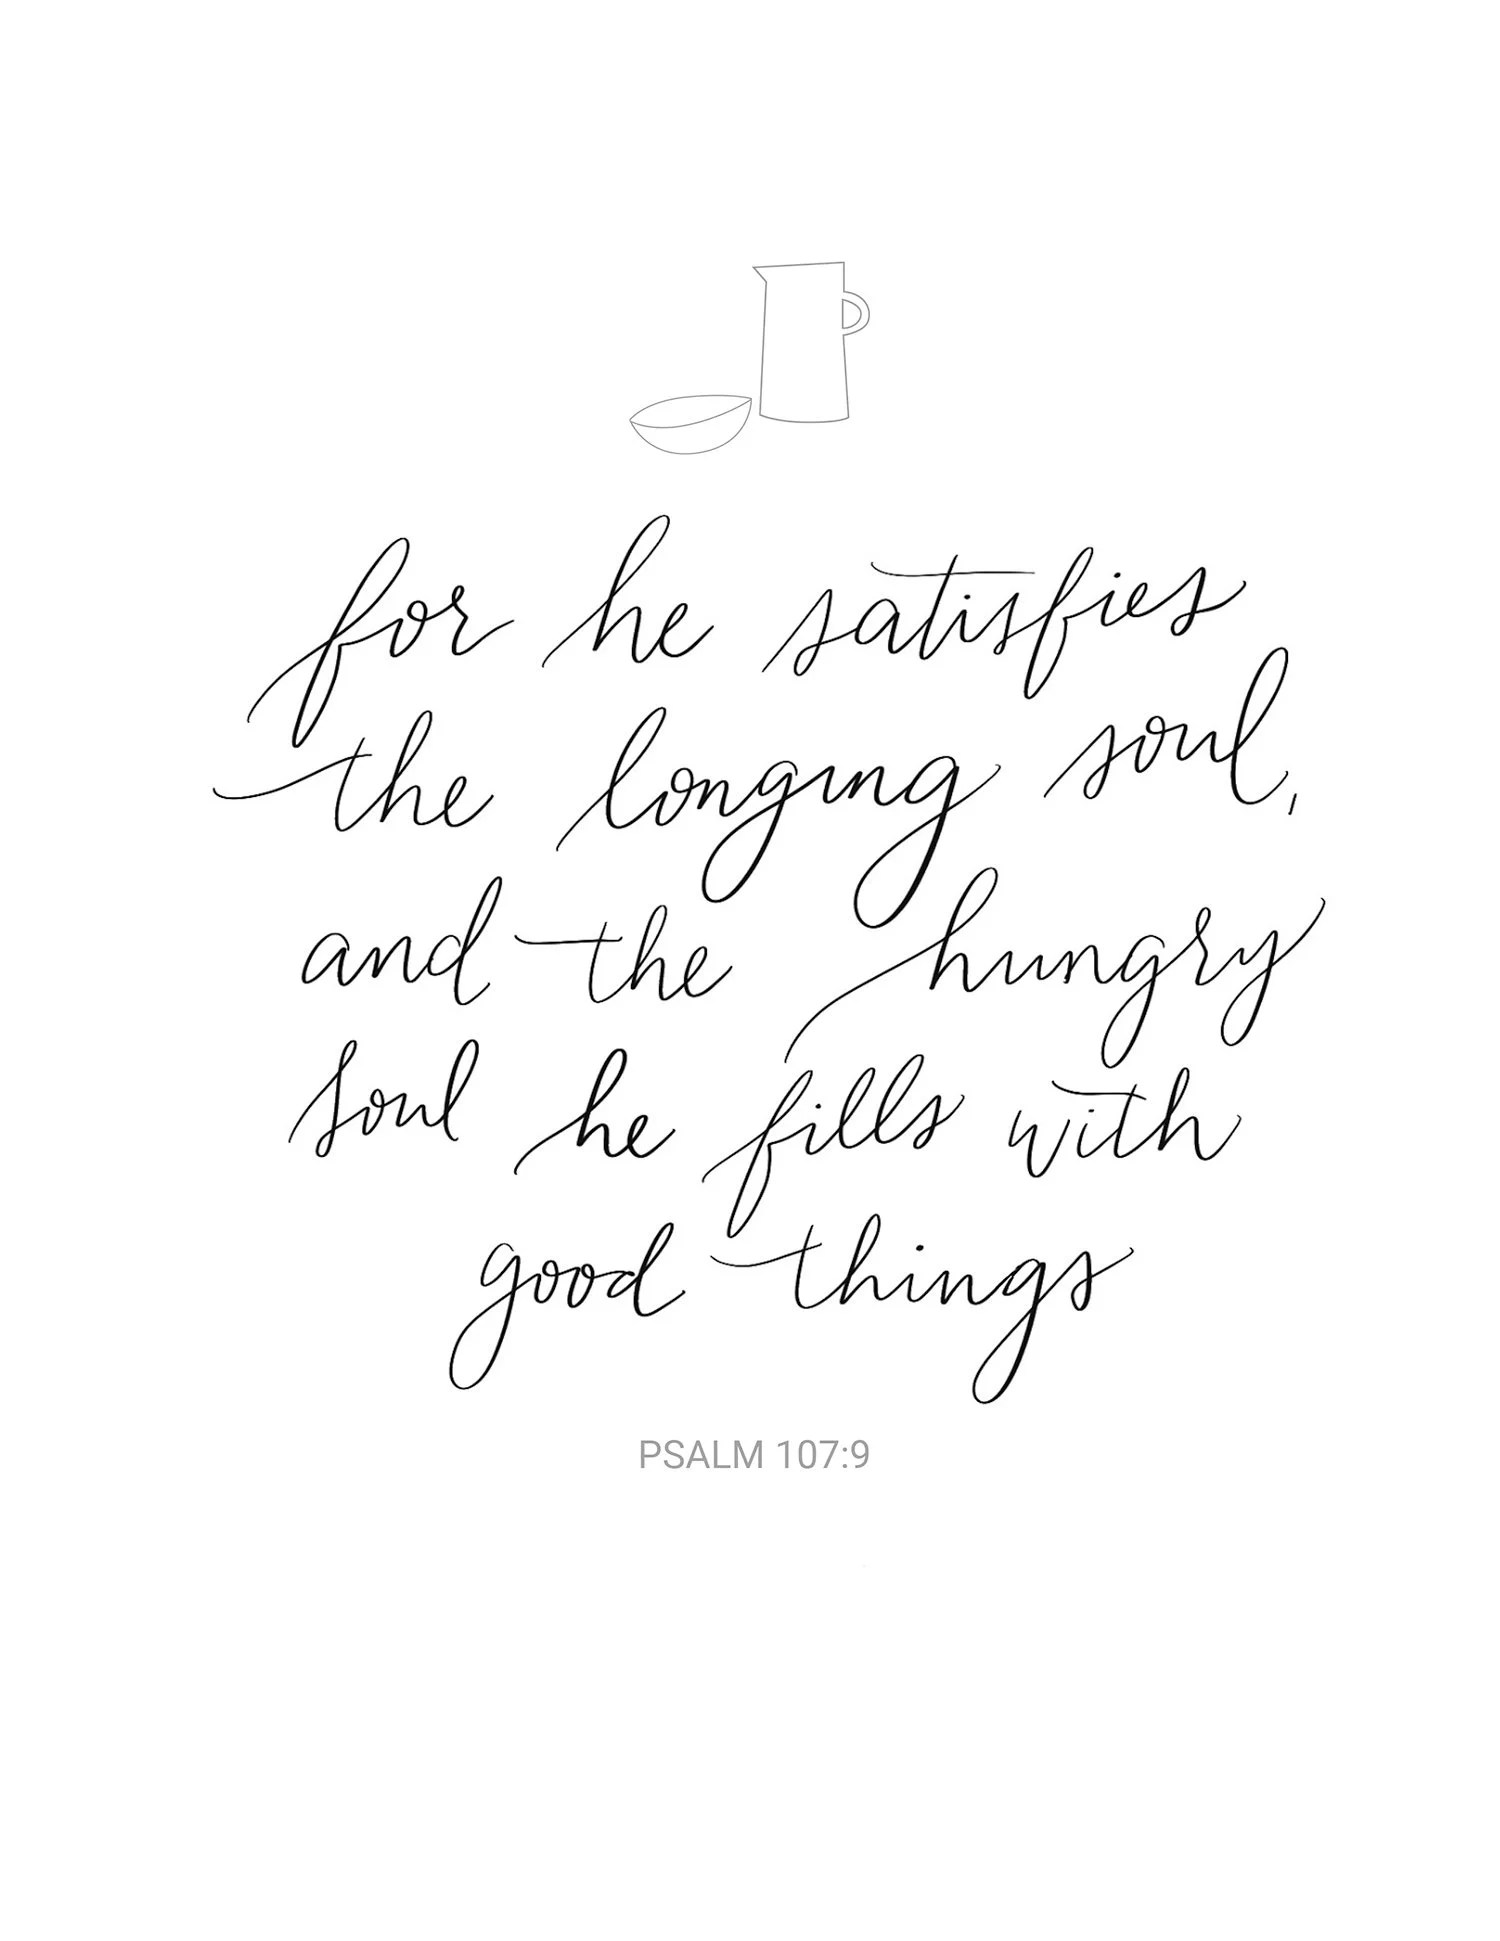 for he satisfies
the longing soul,
and the hungry
soul he fills with
good things
PSALM 107:9